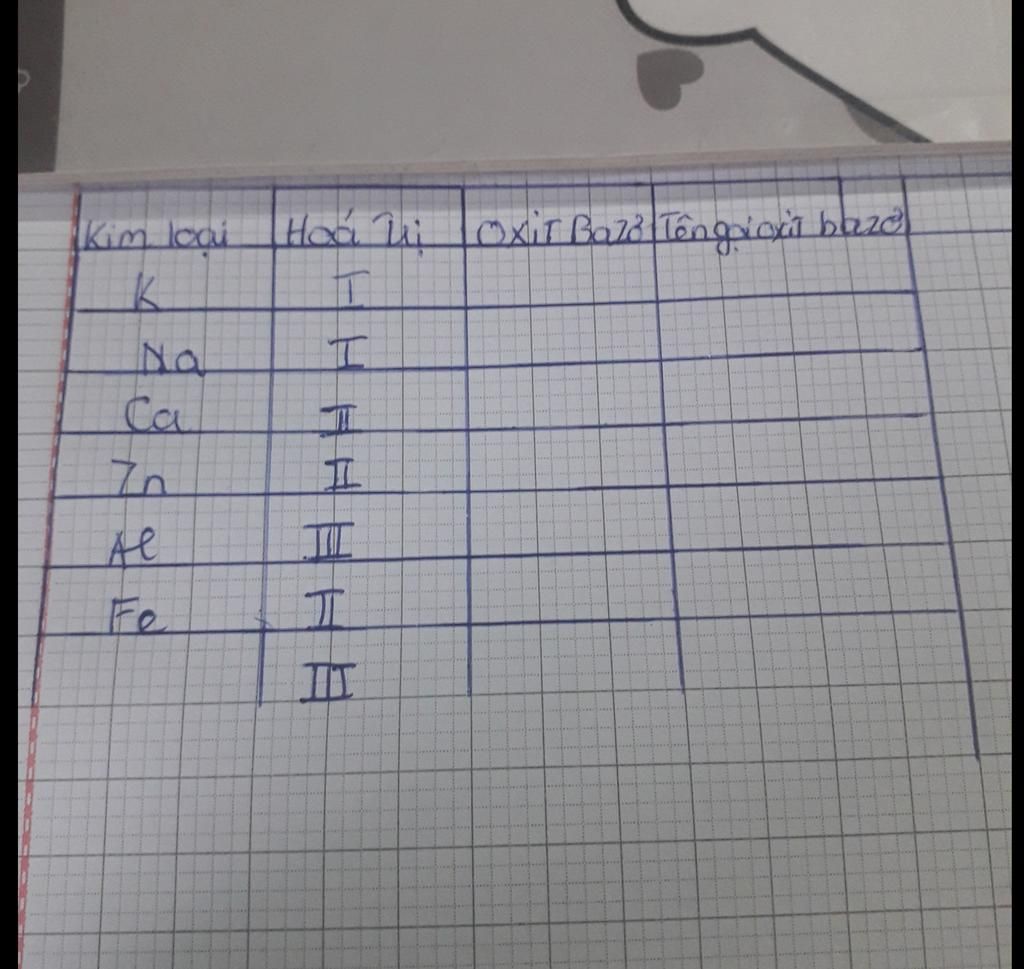 Kim loại Hoá Trị Oxit Bazơ Tên gọi oxit bazơ
K I
Na I
Ca II
Zn II
Al III
Fe II
III